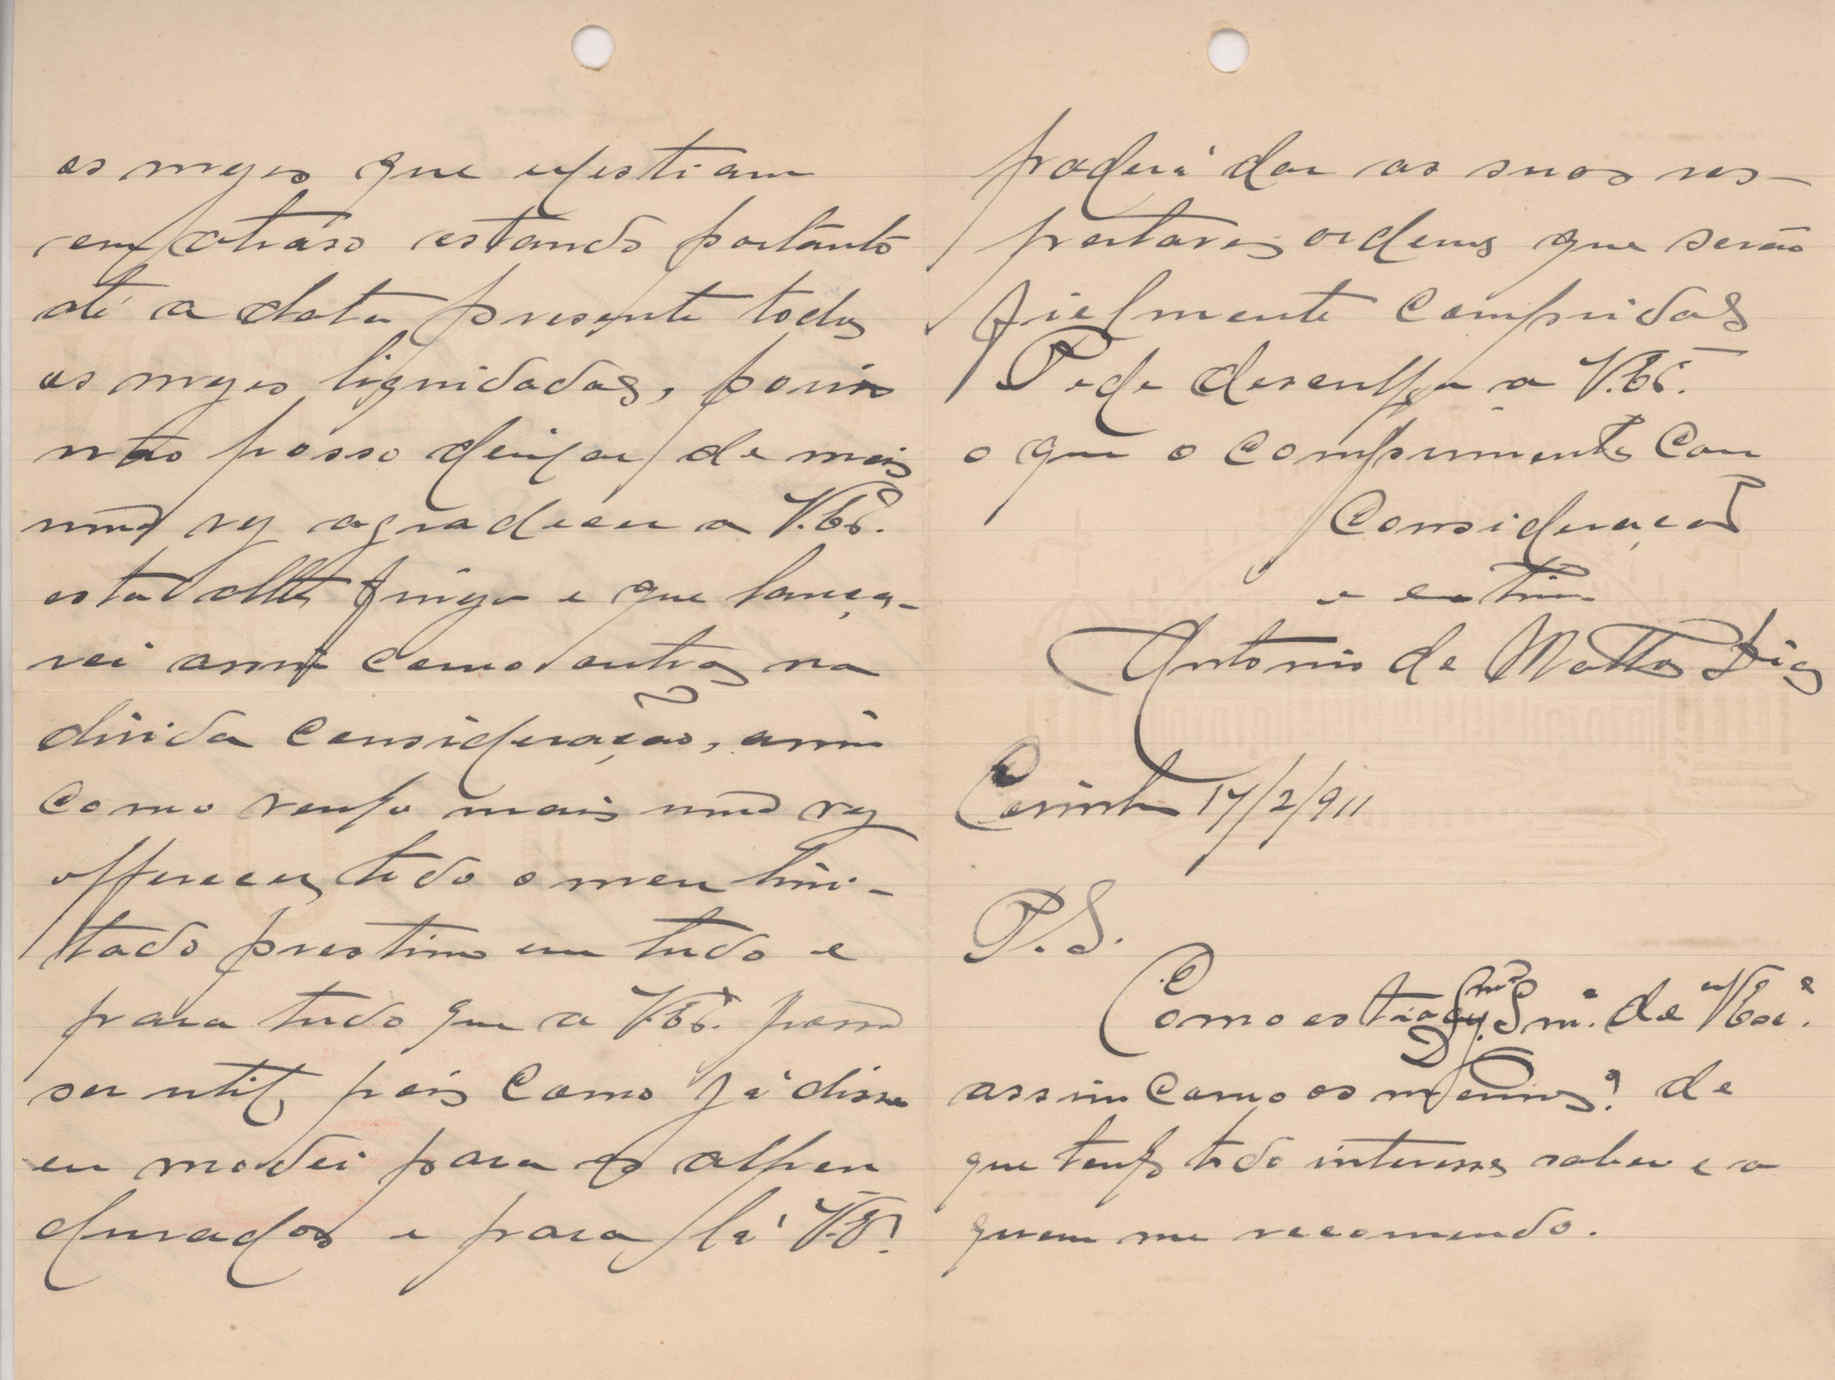 as mezes que existiam
em atrazo estando portanto
até a data presente todas
as mezes liquidadas, porém
não posso deixar de mais
uma vez agradecer a V. Ex.ª
esta alta fineza e que lança-
rei assim como outras na
divida consideração, assim
como venho mais uma vez
offerecer todo o meu limi-
tado prestimo em tudo e
para tudo que a V. Ex.ª possa
ser util, pois como já disse
eu mudei para
e para lá V. Ex.ª
poderá dar as suas res-
peitaveis ordens que serão
fielmente compridas
Pede desculpa a V. Ex.ª
o que o comprimenta com
Consideração
e estima
Antonio de Mattos Dias
17/2/911
P. S.
Como está a Ex.mª Snr.ª de V. Ex.ª
assim como os meninos? de
que tenho todo interesse saber e a
quem me recomendo.